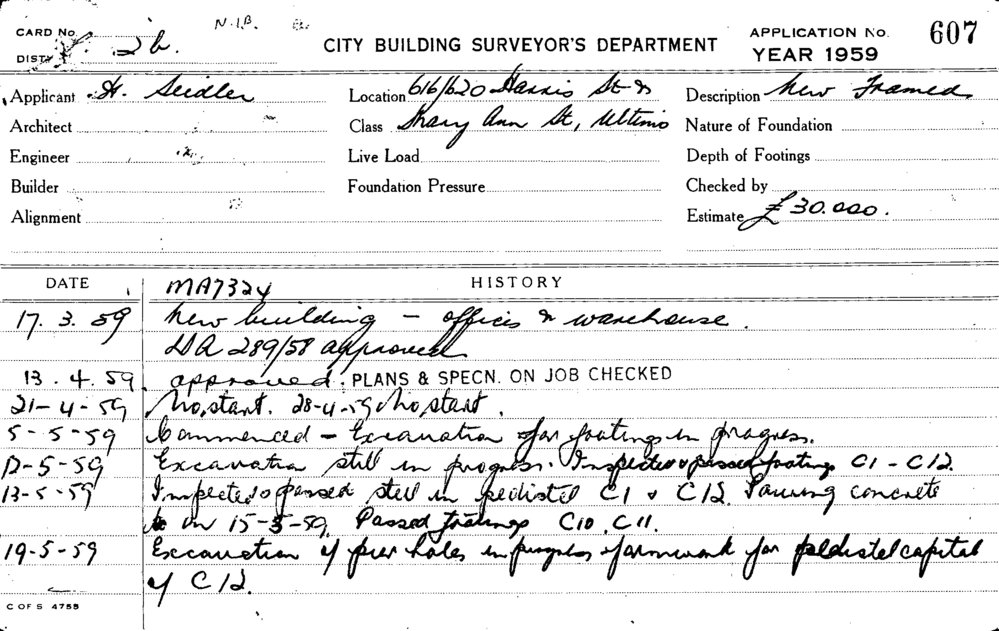 N.I.B.
CARD No.
DISTY 2b.
CITY BUILDING SURVEYOR'S DEPARTMENT
APPLICATION No. 607
YEAR 1959
Applicant H. Seidler
Location 616/620 Harris St &
Description New Framed
Architect
Class Mary Ann St, Ultimo
Nature of Foundation
Engineer
Live Load
Depth of Footings
Builder
Foundation Pressure
Checked by
Alignment
Estimate £30.000.
DATE
HISTORY
MA7324
17. 3. 59 New building – offices & warehouse.
DA 289/58 approved
13. 4. 59. approved. PLANS & SPECN. ON JOB CHECKED
21-4-59 No start. 28-4-59 No start.
5-5-59 Commenced – Excavation for footings in progress.
12-5-59 Excavation still in progress. Inspected & passed footings C1 - C12.
13-5-59 Inspected & passed steel in pedistel C1 & C12. Pouring concrete
on 15-5-59. Passed footings C10. C11.
19-5-59 Excavation of pier holes in progress & formwork for peldistel capital
of C12.
C OF S 4755